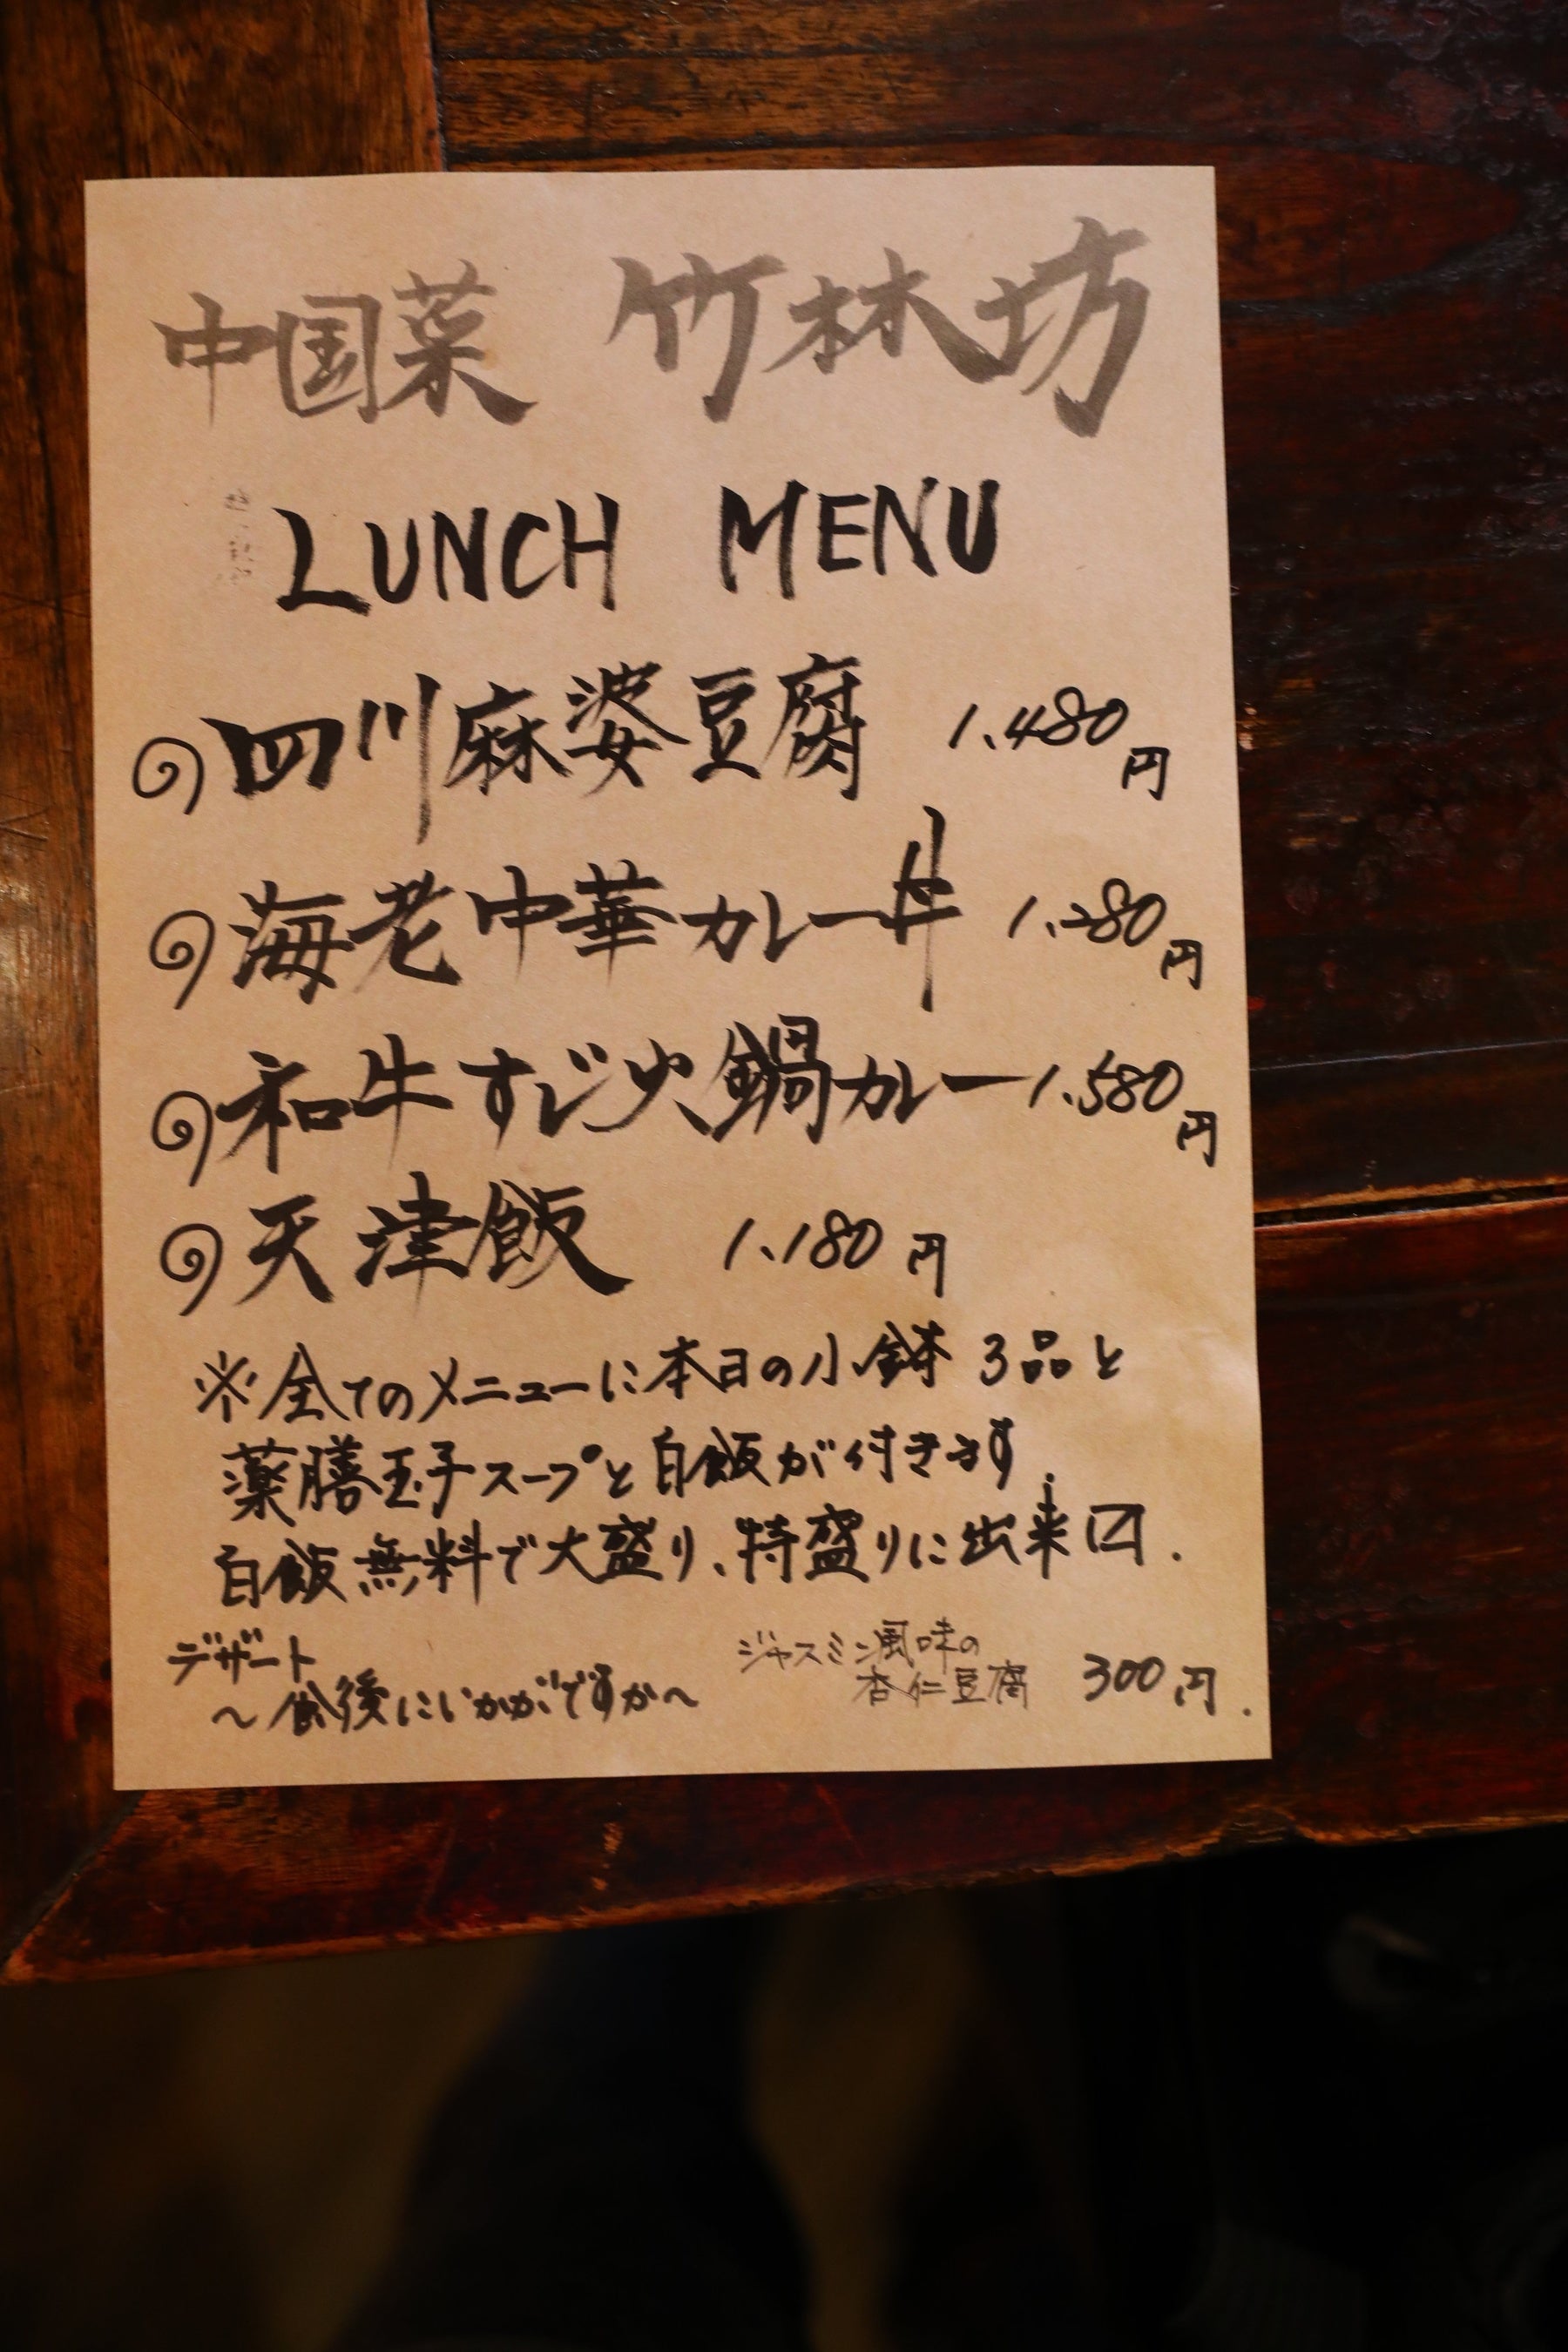 中国菜 竹林坊
LUNCH MENU
四川麻婆豆腐 1.480円
海老中華カレー丼 1.280円
和牛すじ火鍋カレー 1.580円
天津飯 1.180円
※全てのメニューに本日の小鉢3品と
薬膳玉子スープと白飯が付きます.
白飯無料で大盛り、特盛りに出来〼.
デザート
～食後にいかがですか～
ジャスミン風味の
杏仁豆腐 300円.